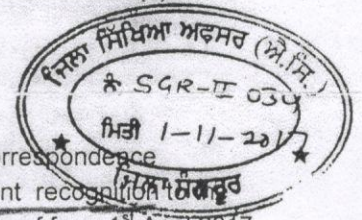 ਜਿਲਾ ਸਿੱਖਿਆ ਅਫਸਰ (ਐ.ਸਿ.)
ਨੰ: SGR-II 030
ਮਿਤੀ 1-11-2017
ਸੰਗਰੂਰ
correspondence
nt recognition to